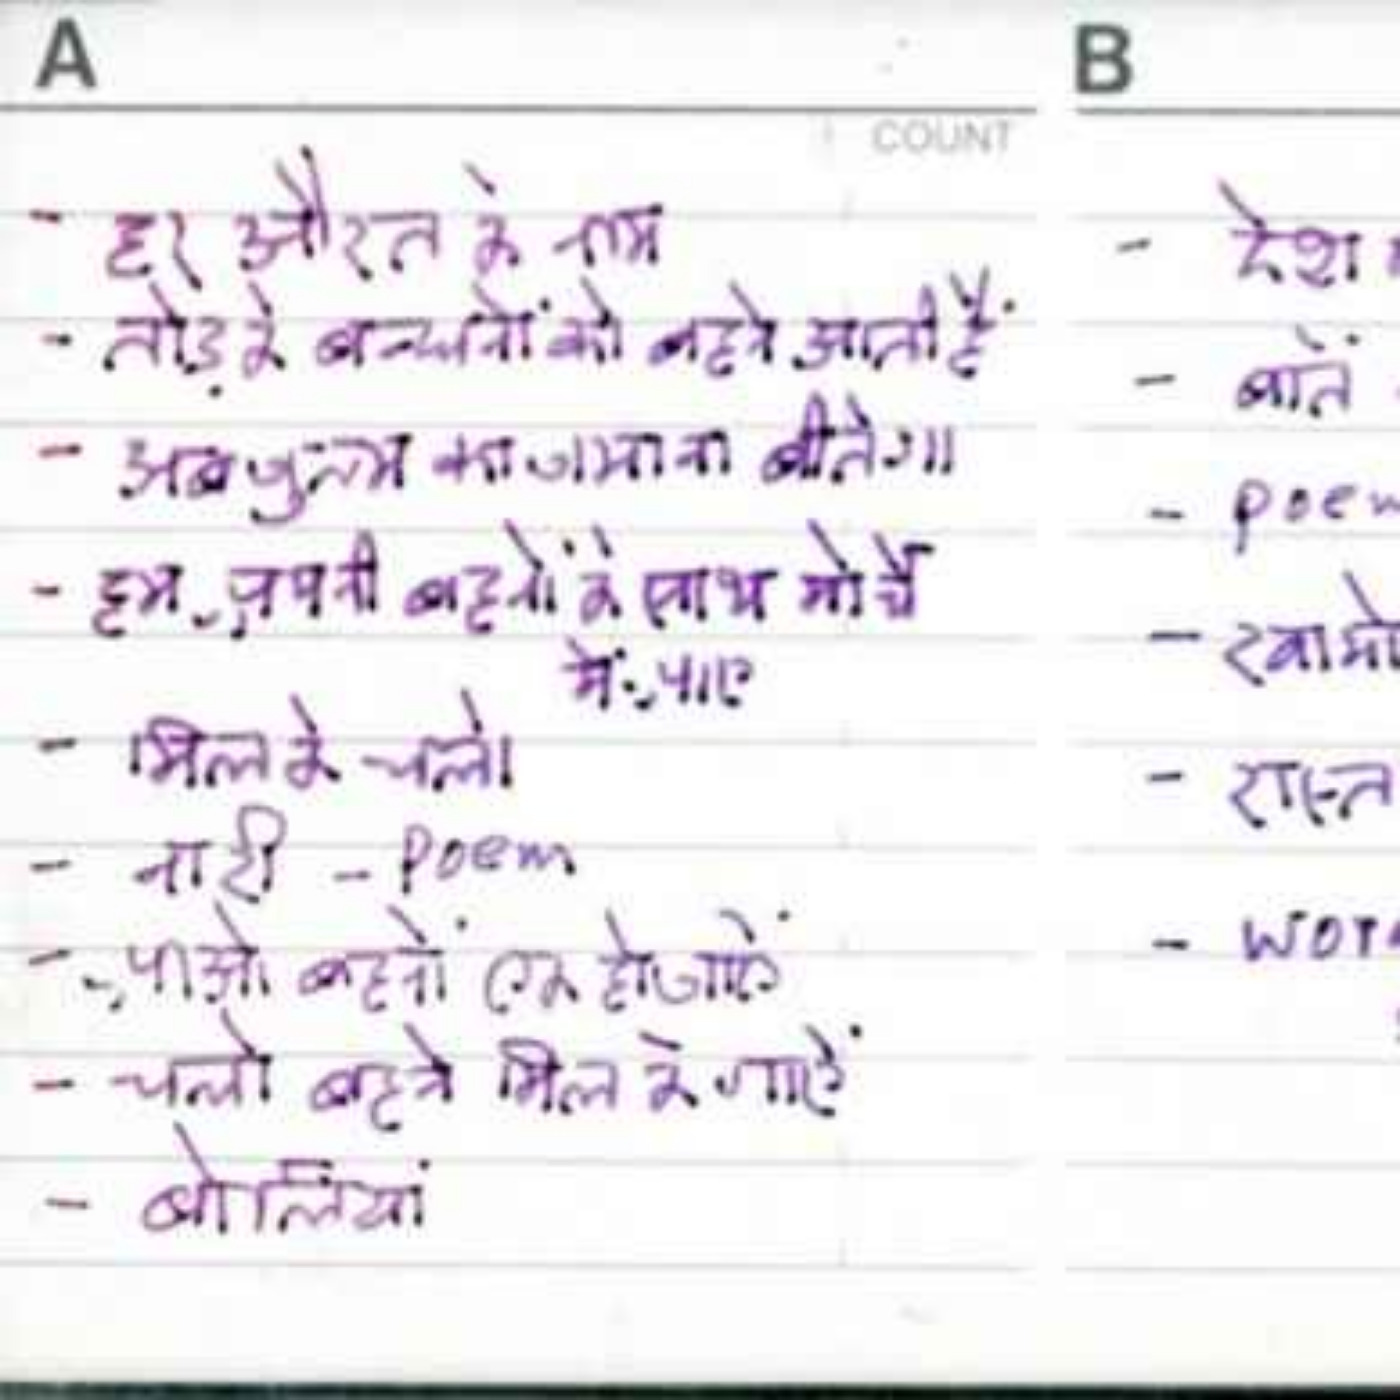 A
COUNT
- हर औरत के नाम
- तोड़ के बन्धनों को बहने आती हैं
- अब जुल्म का जमाना बीतेगा
- हम अपनी बहनों के साथ मोर्चे
में आए
- मिल के चलो
- नारी - Poem
- आओ बहनों एक हो जाऐं
- चलो बहने मिल के गाऐं
- बोलियां
B
- देश
- बातें
-
-
-
-